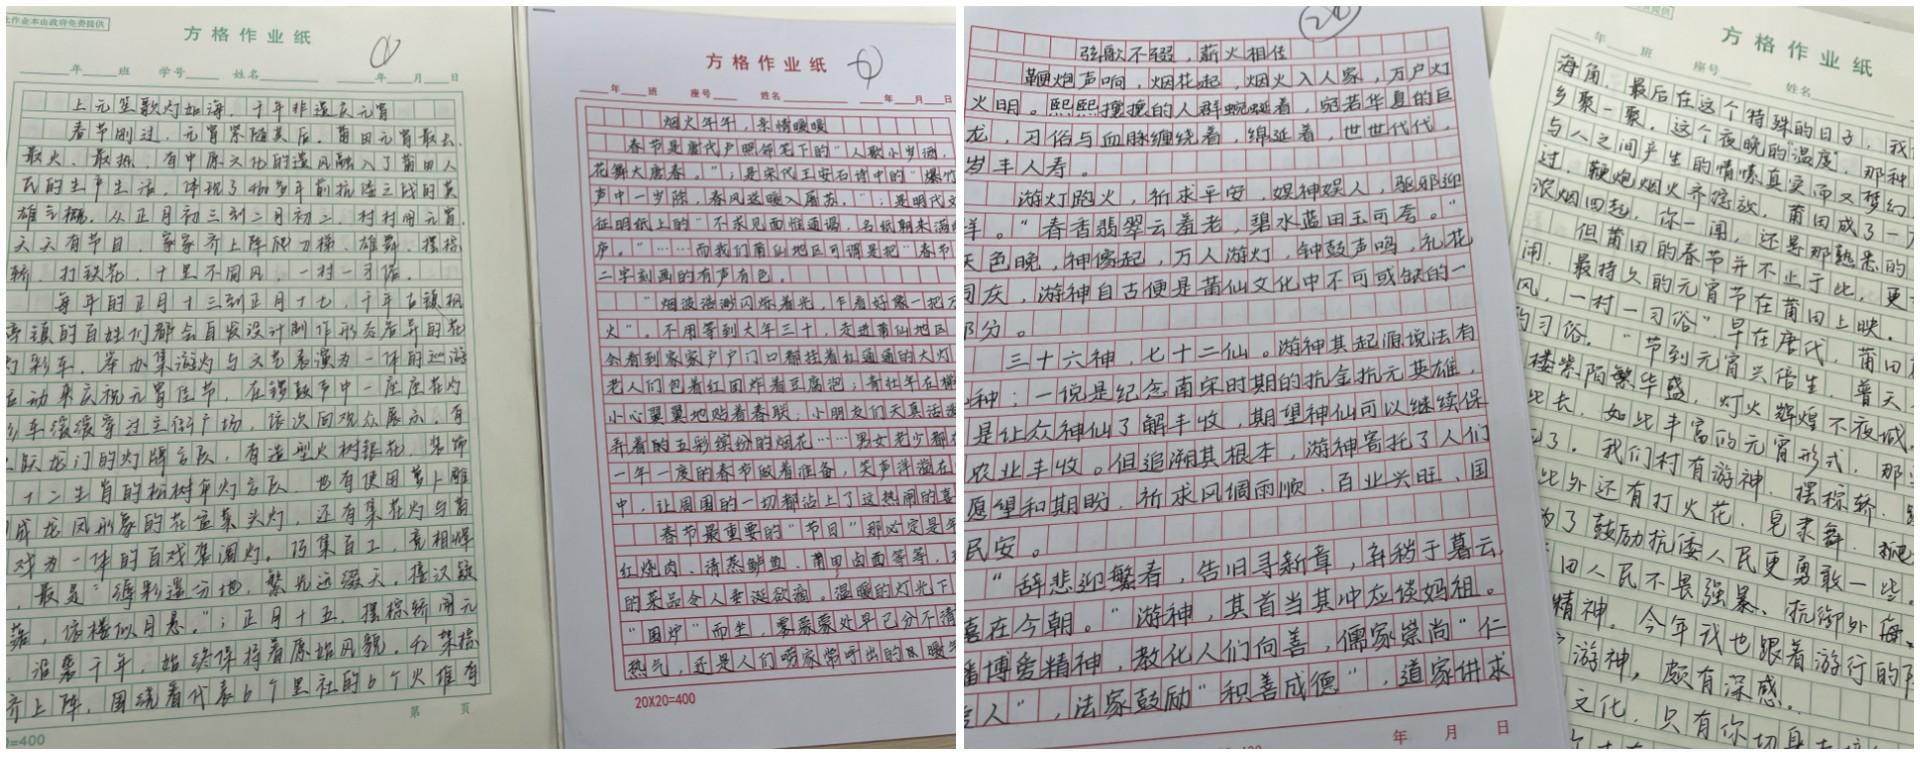 作业本由政府免费提供
方格作业纸
年 班 学号 姓名 年 月 日
上元笙歌灯如海，千年非遗庆元宵
春节刚过，元宵紧随其后，莆田元宵最长、
最火、最热，有中原文化的遗风融入了莆田人
民的生产生活，体现了460多年前抗倭之战的英
雄气概。从正月初三到二月初二，村村闹元宵，
天天有节目，家家齐上阵爬刀梯、雄舞、摆棕
轿、打铁花，十里不同风，一村一习俗。
每年的正月十三到正月十七，千年古镇枫
亭镇的百姓们都会自发设计制作形态各异的花
灯彩车，举办集游灯与文艺表演为一体的巡游
活动来庆祝元宵佳节，在锣鼓声中一座座花灯
彩车缓缓穿过主街广场，依次向观众展示，有
跃龙门的灯牌方队，有造型火树银花、装饰
十二生肖的松树车灯方队，也有使用萝卜雕
成龙凤形象的花盆菜头灯，还有集花灯与莆
戏为一体的百戏架阁灯，巧集百工，竞相
最是“薄彩遗方地，繁光远缀天，接汉疑
落，依楼似月悬。”；正月十五，摆棕轿闹元
沿袭千年，始终保持着原始风貌，42架棕
齐上阵，围绕着代表6个里社的6个火堆有
第 页
=400
方格作业纸
年 班 座号 姓名 年 月 日
烟火年年，亲情暖暖
春节是唐代卢照邻笔下的“人歌小岁酒，
花舞大唐春。”；是宋代王安石诗中的“爆竹
声中一岁除，春风送暖入屠苏。”；是明代文
征明纸上的“不求见面惟通谒，名纸朝来满
庐。”……而我们莆仙地区可谓是把“春节
二字刻画的有声有色。
“烟波浩渺闪烁着光，乍看好像一把
火”。不用等到大年三十，走进莆仙地区
会看到家家户户门口都挂着红通通的大灯
老人们包着红团炸着豆腐泡；青壮年在梯
小心翼翼地贴着春联；小朋友们天真活泼
弄着的五彩缤纷的烟花……男女老少都在
一年一度的春节做着准备，笑声洋溢在
中，让周围的一切都沾上了这热闹的喜
春节最重要的“节目”那必定是年
红烧肉、清蒸鲈鱼、莆田卤面等等，
的菜品令人垂涎欲滴。温暖的灯光下
“围炉”而坐，雾蒙蒙处早已分不清
热气，还是人们唠家常呼出的暖气
20X20=400
弦歌不辍，薪火相传
鞭炮声响，烟花起，烟火入人家，万户灯
火明。熙熙攘攘的人群蜿蜒着，宛若华夏的巨
龙，习俗与血脉缠绕着，绵延着，世世代代，
岁丰人寿。
游灯跑火，祈求平安，娱神娱人，驱邪迎
祥。“春香翡翠云羞老，碧水蓝田玉可夸。”
天色晚，神像起，万人游灯，钟鼓声鸣，礼花
同庆，游神自古便是莆仙文化中不可或缺的一
部分。
三十六神，七十二仙。游神其起源说法有
种；一说是纪念南宋时期的抗金抗元英雄，
是让众神仙了解丰收，期望神仙可以继续保
农业丰收。但追溯其根本，游神寄托了人们
愿望和期盼，祈求风调雨顺、百业兴旺、国
民安。
“辞悲迎繁春，告旧寻新章，弃稍于暮云，
喜在今朝。”游神，其首当其冲应谈妈祖。
播博爱精神，教化人们向善，儒家崇尚“仁
爱人”，法家鼓励“积善成德”，道家讲求
年 月 日
方格作业纸
年 班 座号 姓名
海角，最后在这个特殊的日子，我
乡聚一聚。这个夜晚的“温度”，那种
与人之间产生的情愫真实而又梦幻
过，鞭炮烟火齐绽放，莆田成了一
浓烟四起，你一闻，还是那熟悉的
但莆田的春节并不止于此，更
闹、最持久的元宵节在莆田上映。
风，一村一习俗”，早在唐代，莆田
的习俗。“节到元宵兴倍生，普天
楼紫陌繁华盛，灯火辉煌不夜城。
此长，如此丰富的元宵形式，那
了。我们村有游神、摆棕轿、
此外还有打火花、皂隶舞、
为了鼓励抗倭人民更勇敢一些，
田人民不畏强暴、抗御外侮
精神。今年我也跟着游行的
游神，颇有深感。
文化，只有你切身去